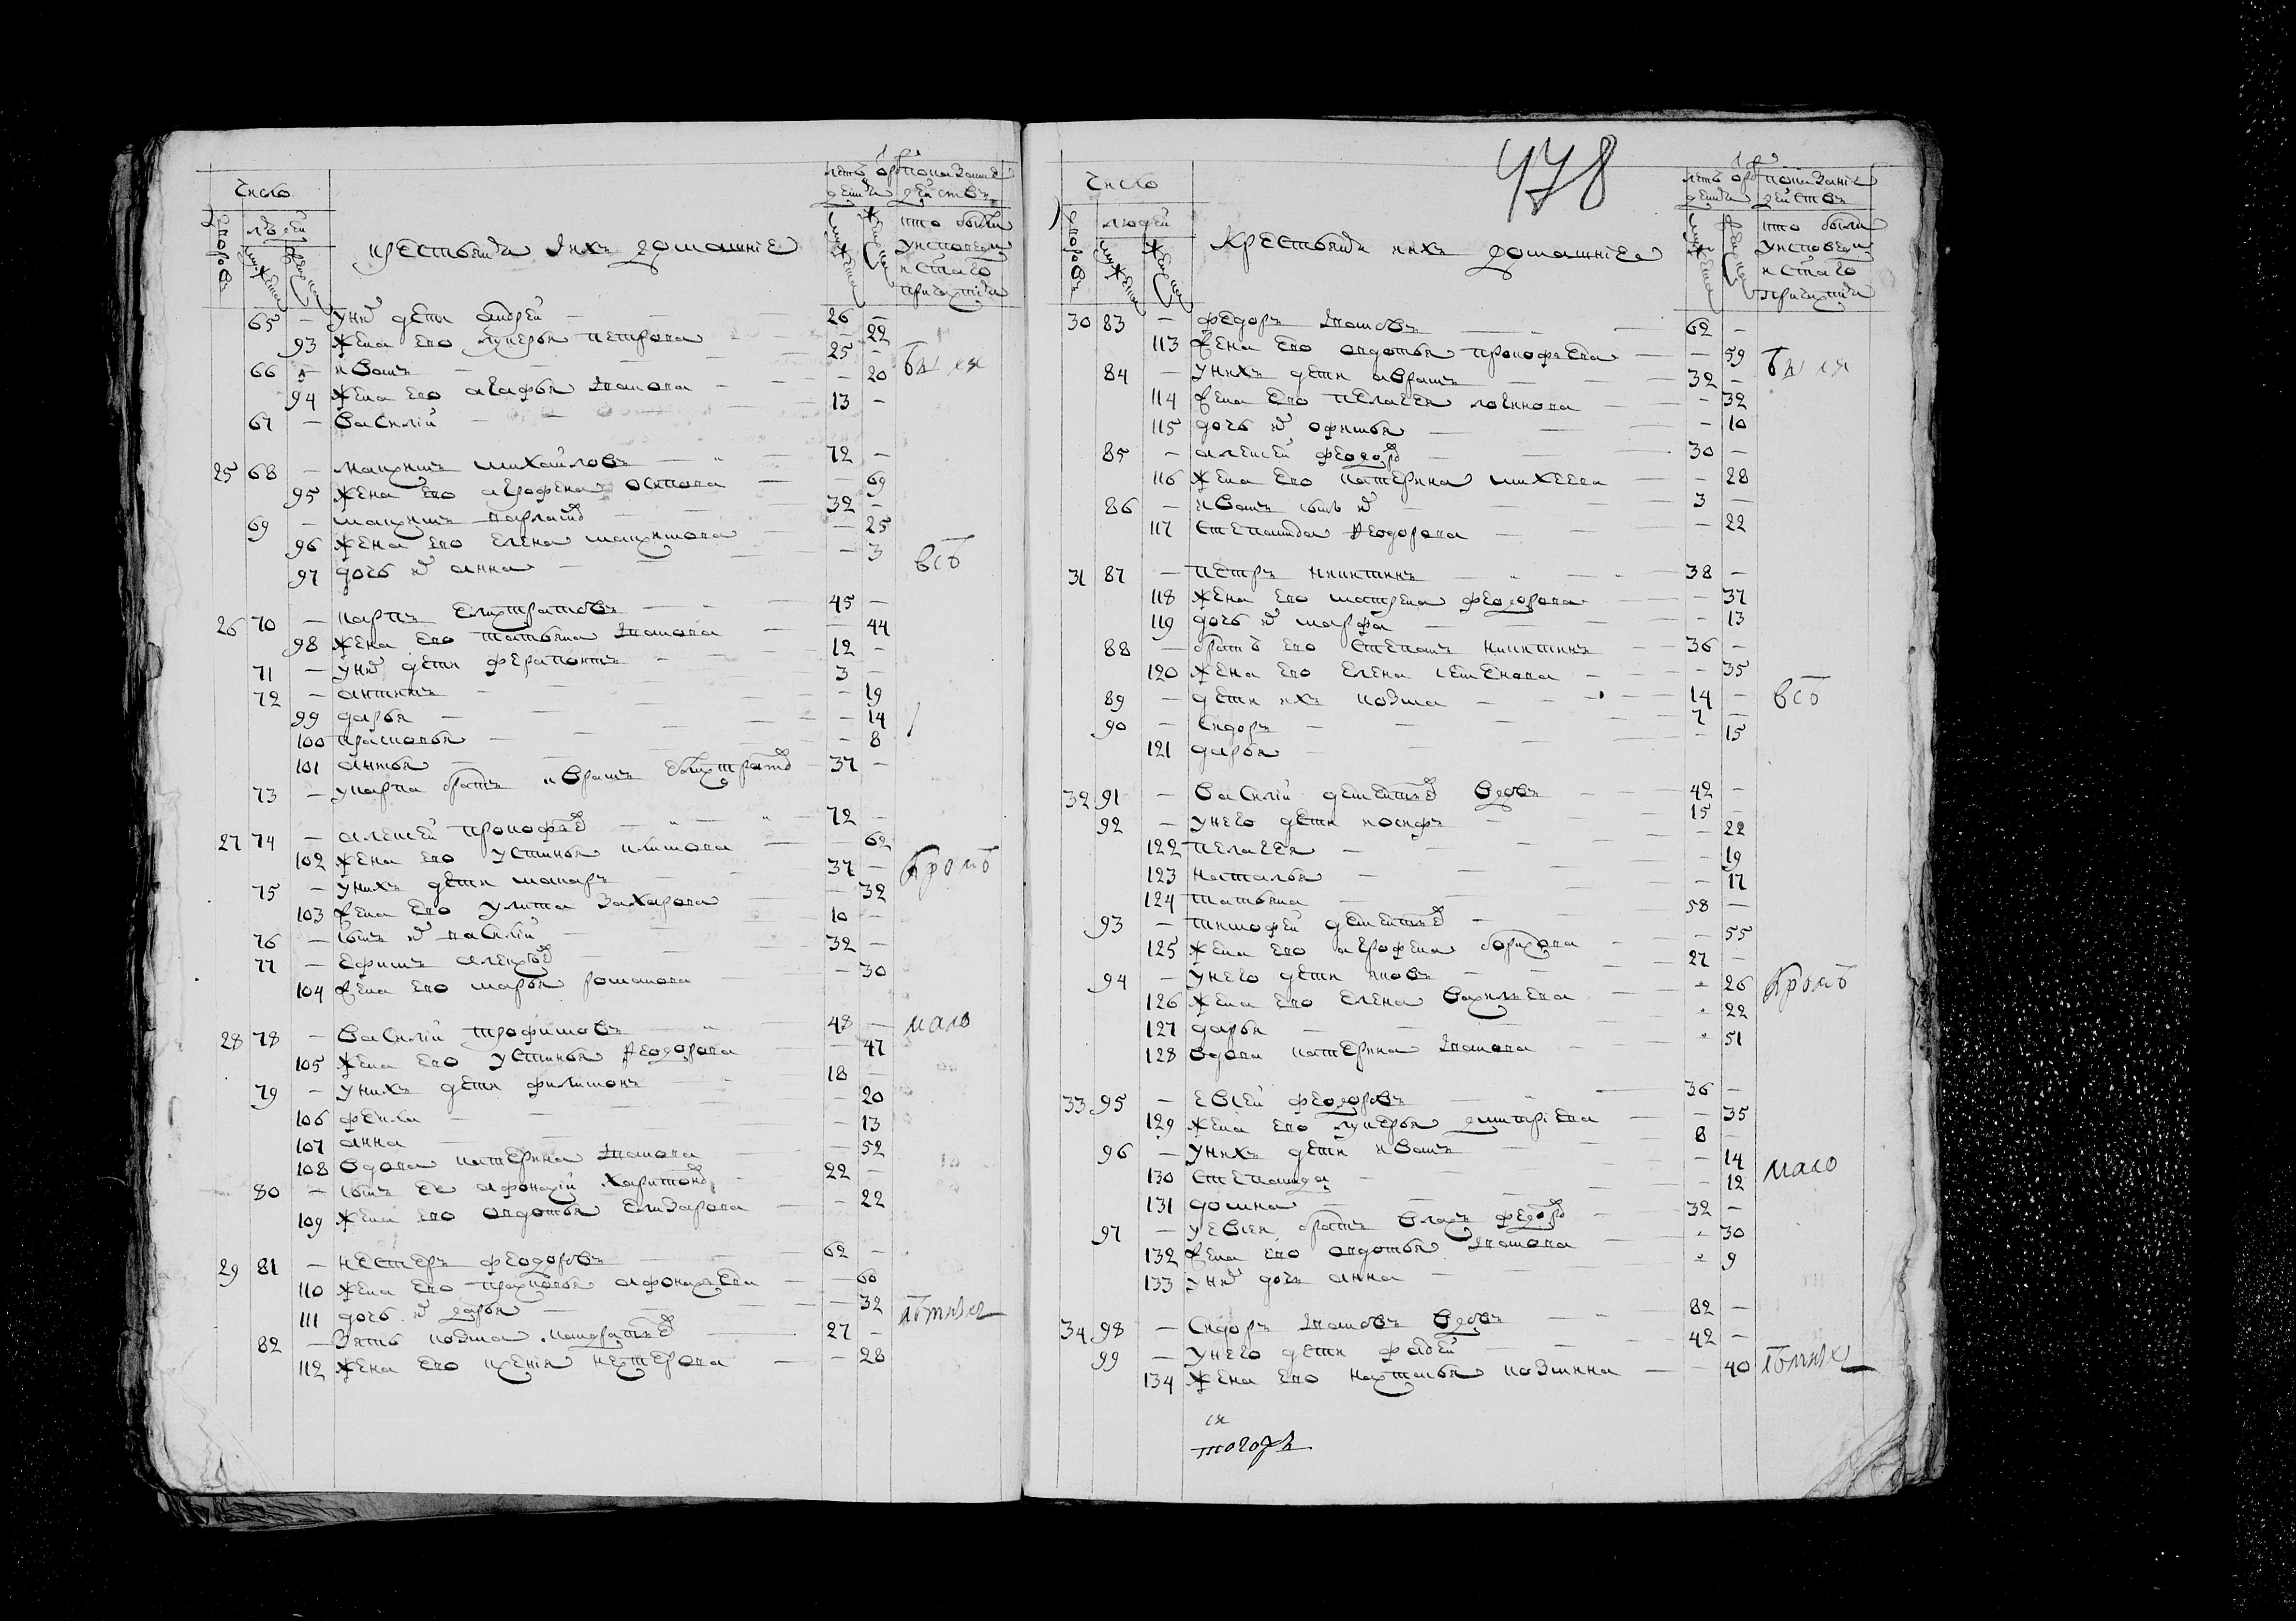 число
людей
дворовъ
мужеска
женска
крестьяня ихъ домашніе
лѣтъ от
показаніе
действъ
кто были
у исповеди
и с͠таго
причастия
65 — у нихъ дети андрей — 26 —
93 жена его лукерья петрова — 22
66 — иванъ — 25 —
94 жена его агафья иванова — 20
67 — василий — 13 —
были
25 68 — максимъ михайловъ — 72 —
95 жена его аграфена осипова — 69
69 — максимъ — 32 —
96 жена его елена максимова — 25
97 дочь их анна — 3
всѣ
26 70 — карпъ елистратовъ — 45 —
98 жена его татьяна иванова — 44
71 — у них дети ферапонтъ — 12 —
72 — антипъ — 3 —
99 дарья — 19
100 прасковья — 14
101 анна — 8
73 — у карпа братъ аврамъ елистратов — 37 —
27 74 — алексей прокофьев — 72 —
102 жена его устинья климова — 62
75 — у нихъ дети макаръ — 37 —
103 жена его улита захарова — 32
76 — сынъ их василий — 10 —
77 — ефимъ алексеев — 32 —
104 жена его марья романова — 30
кромѣ
28 78 — василий трофимовъ — 48 —
105 жена его устинья феодорова — 47
79 — у нихъ дети филимонъ — 18 —
106 фекла — 20
107 анна — 13
108 вдова катерина иванова — 52
80 — сынъ ее афонасий харитонов — 22 —
109 жена его авдотья елизарова — 22
мало
29 81 — нестеръ феодоровъ — 62 —
110 жена его прасковья афонасьева — 60
111 дочь их дарья — 32
82 — зять козма кондратьев — 27 —
112 жена его ксения нестерова — 28
лѣтнихъ
478
число
людей
дворовъ
мужеска
женска
крестьяня ихъ домашніе
лѣтъ от
показаніе
действъ
кто были
у исповеди
и с͠таго
причастия
30 83 — федоръ ивановъ — 62 —
113 жена его авдотья прокофьева — 59
84 — у нихъ дети аврамъ — 32 —
114 жена его пелагея логинова — 32
115 дочь их офимья — 10
85 — алексей феодоров — 30 —
116 жена его катерина михеева — 28
86 — иванъ сынъ их — 3 —
117 степанида феодорова — 22
были
31 87 — петръ никитинъ — 38 —
118 жена его матрена феодорова — 37
119 дочь их марфа — 13
88 — братъ его степанъ никитинъ — 36 —
120 жена его елена семенова — 35
89 — дети ихъ козма — 14 —
90 — сидоръ — 7 —
121 дарья — 15
всѣ
32 91 — василий дементьев вдовъ — 42 —
92 — у него дети иосифъ — 15 —
122 пелагея — 22
123 наталья — 19
124 татьяна — 17
93 — тимофей дементьев — 58 —
125 жена его аграфена борисова — 55
94 — у него дети яковъ — 27 —
126 жена его елена васильева — 26
127 дарья — 22
128 вдова катерина иванова — 51
кромѣ
33 95 — евсей феодоровъ — 36 —
129 жена его лукерья дмитриева — 35
96 — у нихъ дети иванъ — 8 —
130 степанида — 14
131 домна — 12
97 — у евсея братъ власъ федоров — 32 —
132 жена его авдотья иванова — 30
133 у них дочь анна — 9
мало
34 98 — сидоръ ивановъ вдовъ — 82 —
99 — у него дети фадей — 42 —
134 жена его настасья козмина — 40
лѣтнихъ